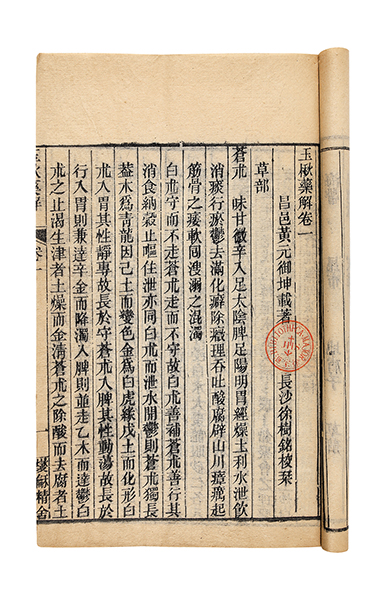 玉楸藥解卷一
昌邑黃元御坤載著 長沙徐樹銘校栞
草部
蒼朮 味甘微辛入足太陰脾足陽明胃經燥土利水泄飲
消痰行瘀鬱去滿化癖除癥理吞吐酸腐辟山川瘴癘起
筋骨之痿軟回溲溺之混濁
白朮守而不走蒼朮走而不守故白朮善補蒼朮善行其
消食納穀止嘔住泄亦同白朮而泄水開鬱則蒼朮獨長
葢木爲青龍因己土而變色金爲白虎緣戊土而化形白
朮入胃其性靜專故長於守蒼朮入脾其性動蕩故長於
行入胃則兼達辛金而降濁入脾則並走乙木而達鬱白
朮之止渴生津者土燥而金清蒼朮之除酸而去腐者土
玉楸藥解 卷一 一 燮龢精舍